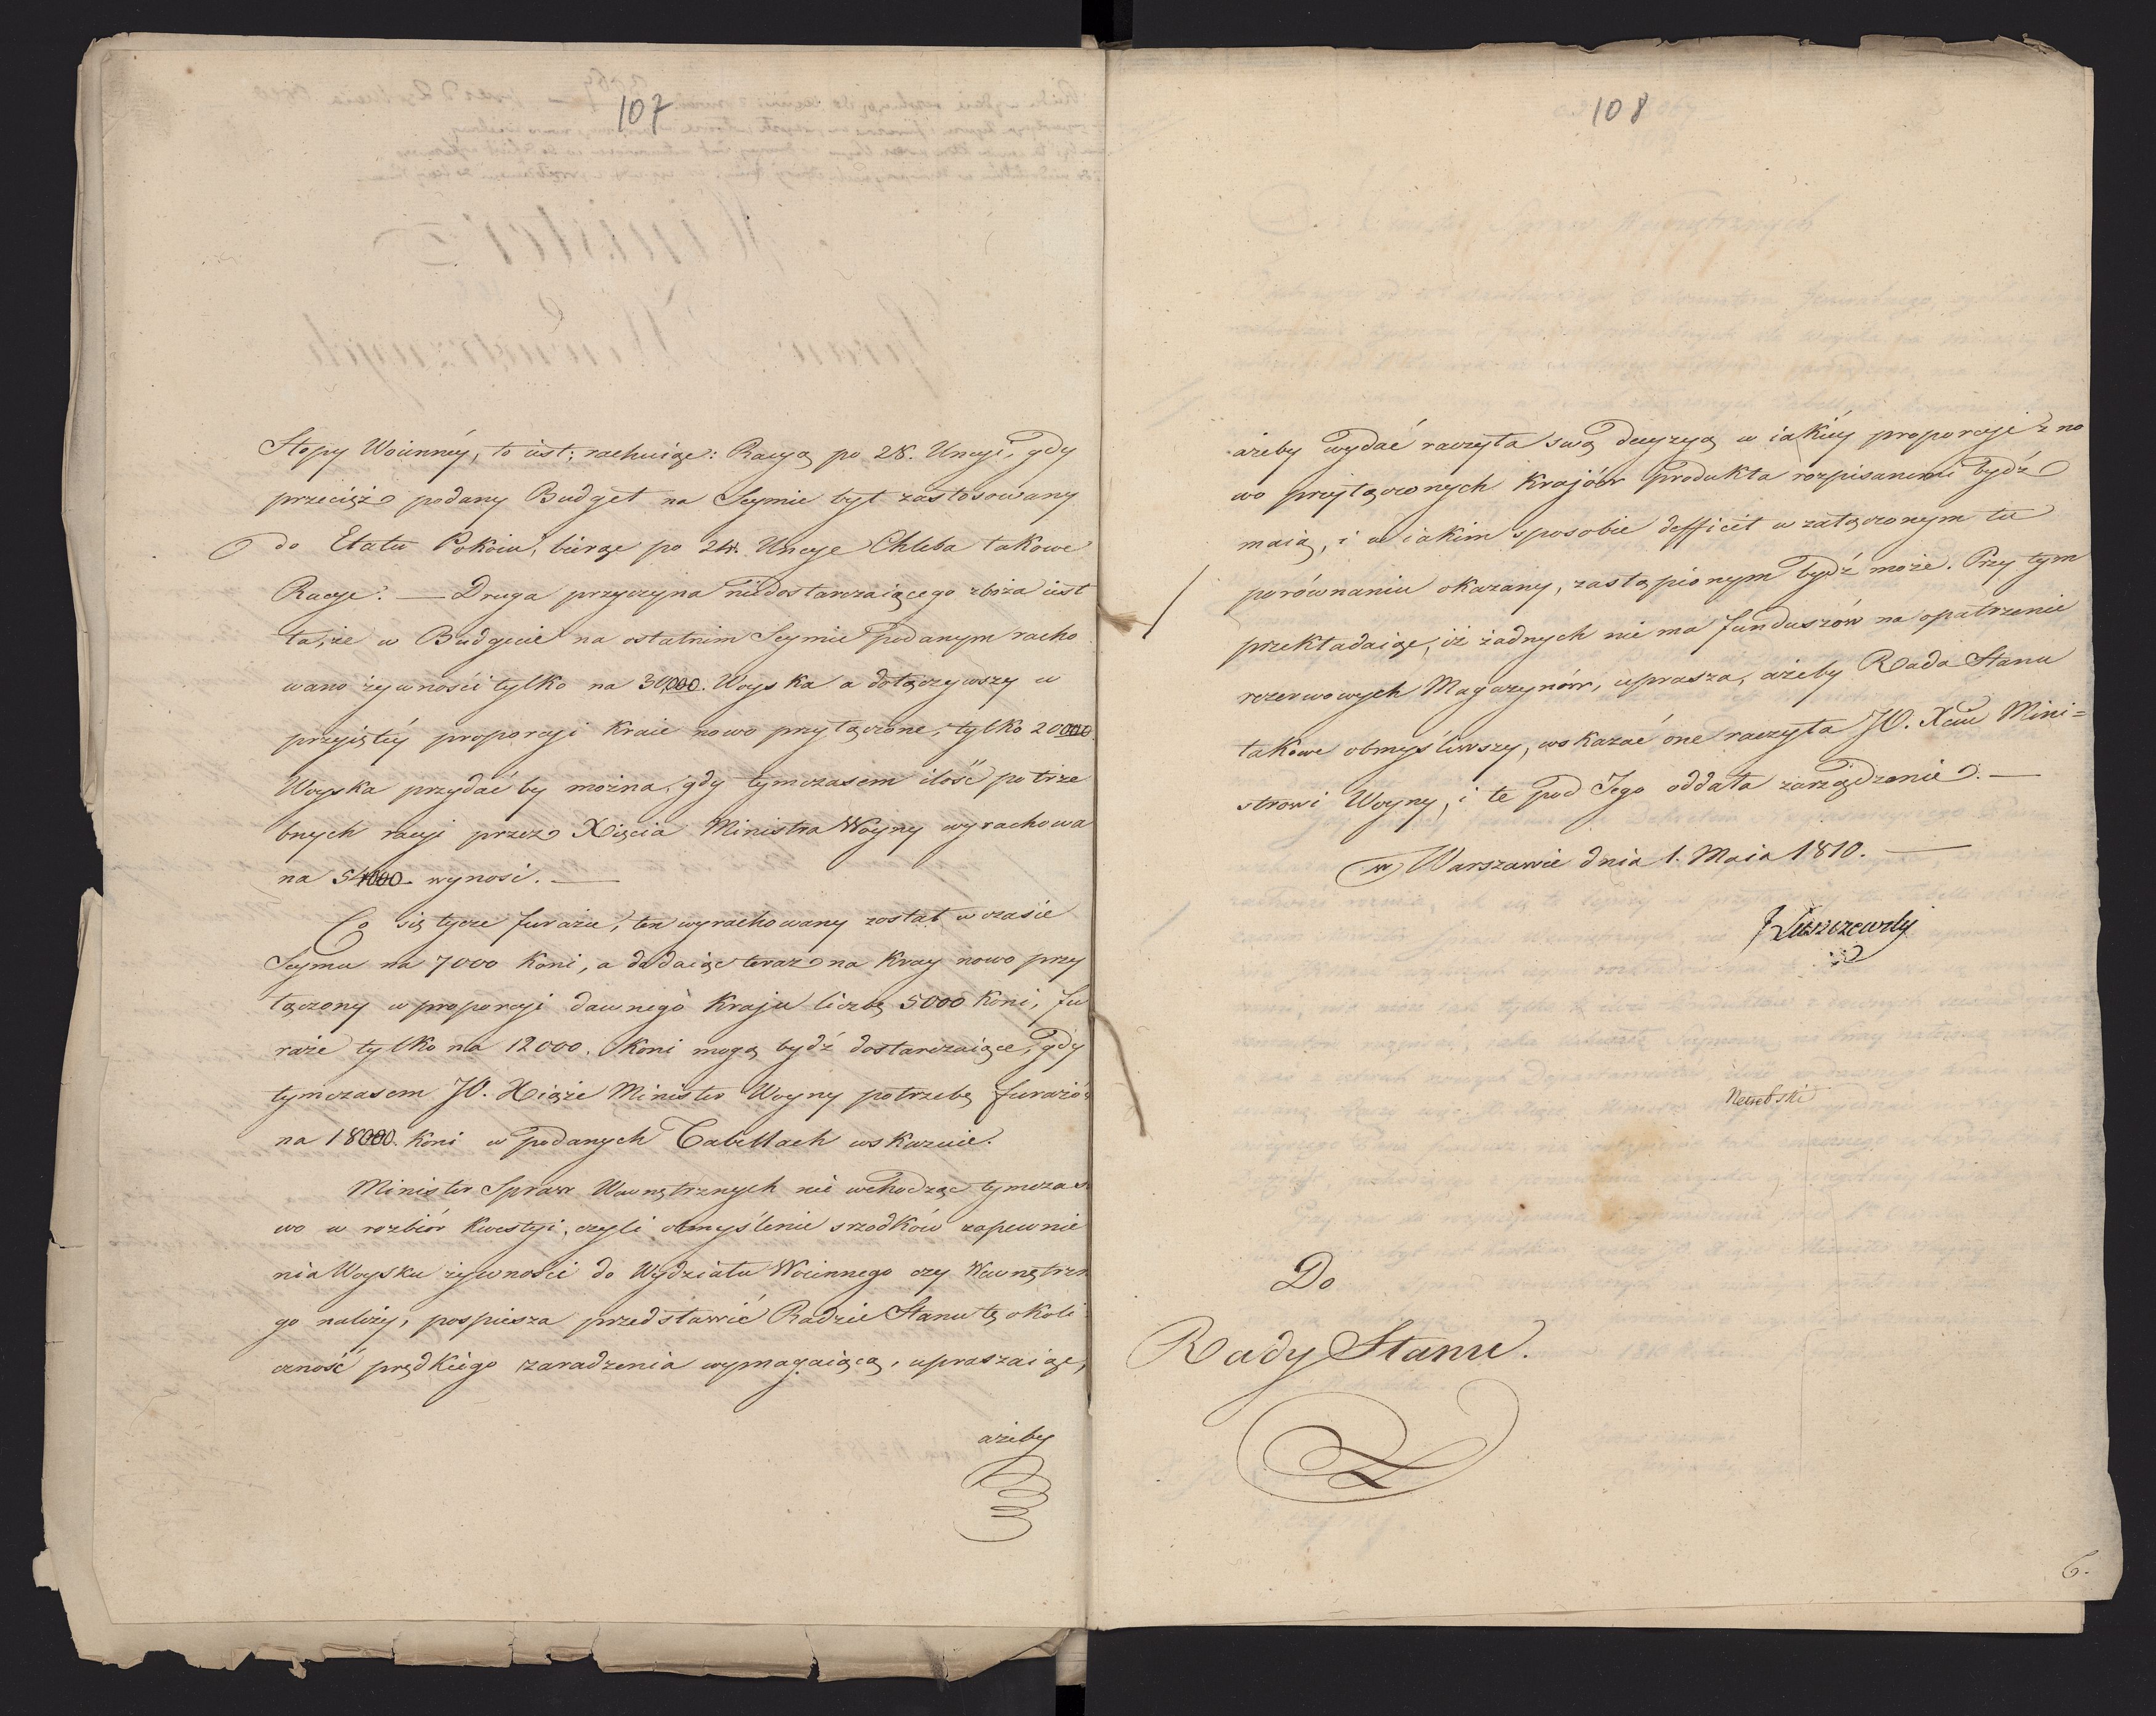 107
Stopy Woienney, to iest; rachuiąc: Racyą po 28. Uncyi, gdy
przecież podany Budget na Seymie był zastosowany
do Etatu Pokoiu, biorąc po 24. Uncye Chleba takowe
Racye. — Druga przyczyna niedostarczaiącego zboża iest
ta, że w Budgecie na ostatnim Seymie podanym racho
wano żywności tylko na 30,000. Woyska a dołączywszy w
przyiętéy proporcyi Kraie nowo przyłączone, tylko 20000.
Woyska przydać by można, gdy tymczasem ilość potrze
bnych racyi przez Xięcia Ministra Woyny wyrachowa
na 54000 wynosi. —
Co się tycze furażu, ten wyrachowany został w czasie
Seymu na 7000 Koni, a dodaiąc teraz na Kray nowo przy
łączony w proporcyi dawnego Kraju liczbę 5000 Koni, fu
raże tylko na 12000. Koni mogą bydź dostarczaiące, gdy
tymczasem JO. Xiąże Minister Woyny potrzebę furażów
na 18000. Koni w podanych Tabellach wskazuie.
Minister Spraw Wewnętrznych nie wchodząc tymczaso
wo w rozbiór kwestyi, czyli obmyślenie srzodków zapewnie
nia Woysku żywności do Wydziału Woiennego czy Wewnętrzne
go należy, pospiesza przedstawić Radzie Stanu tę okoli
czność prędkiego zaradzenia wymagaiącą, upraszaiąc,
ażeby
108
ażeby wydać raczyła swą decyzyą w iakiéy proporcyi z no
wo przyłączonych Krajów Produkta rozpisanemi bydź
maią, i w iakim sposobie defficit w załączonym tu
porównaniu okazany, zastąpionym bydź może. Przy tym
przekładaiąc, iż żadnych nie ma funduszów na opatrzenie
rezerwowych Magazynów, uprasza, ażeby Rada Stanu
takowe obmyśliwszy, wskazać one raczyła JO. Xciu Mini=
strowi Woyny, i te pod Jego oddała zarządzenie. —
w Warszawie dnia 1. Maia 1810. —
J Łuszczewsky
Netrebski
Do
Rady Stanu.
6.